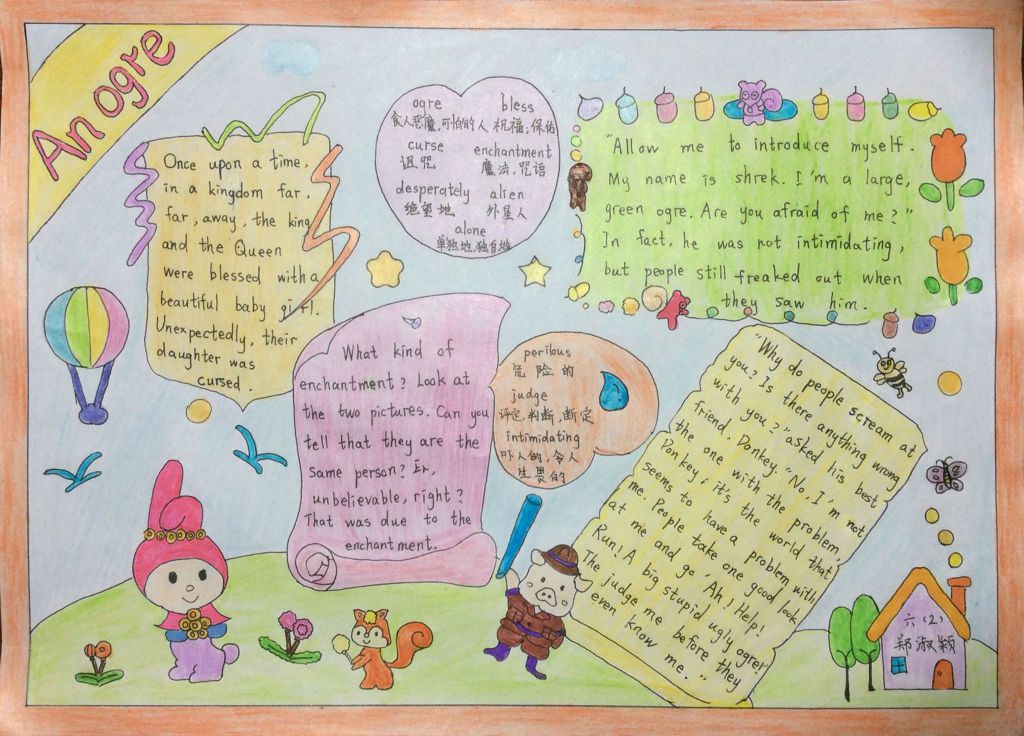 An ogre
Once upon a time,
in a kingdom far,
far, away, the king
and the Queen
were blessed with a
beautiful baby girl.
Unexpectedly, their
daughter was
cursed.
ogre bless
食人恶魔,可怕的人 祝福;保佑
curse enchantment
诅咒 魔法,咒语
desperately alien
绝望地 外星人
alone
单独地,独自地
"Allow me to introduce myself.
My name is shrek. I'm a large,
green ogre. Are you afraid of me?"
In fact, he was not intimidating,
but people still freaked out when
they saw him.
What kind of
enchantment? Look at
the two pictures. Can you
tell that they are the
same person?
unbelievable, right?
That was due to the
enchantment.
perilous
危险的
judge
评定,判断,断定
intimidating
吓人的,令人
生畏的
"Why do people scream at
you? Is there anything wrong
with you?" asked his best
friend, Donkey. "No, I'm not
the one with the problem,
Donkey, it's the world that
seems to have a problem with
me. People take one good look
at me and go 'Ah! Help!
Run! A big stupid ugly ogre!
The judge me before they
even know me."
六(2)
郑淑颖